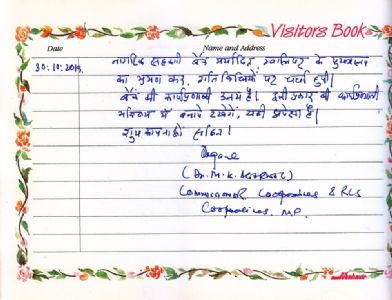 Visitors Book
Date Name and Address
30.10.2013, नागरिक सहकारी बैंक मर्यादित, ग्वालियर के मुख्यालय
का भ्रमण कर, गतिविधियों पर चर्चा हुयी।
बैंक की कार्यप्रणाली उत्तम है। इसी प्रकार की कार्यप्रणाली
भविष्य में बनाये रखेंगे, यही अपेक्षा है।
शुभकामनाओं सहित।
(Dr. M.K.
Commissioner Cooperatives & RCS
Cooperatives, MP.